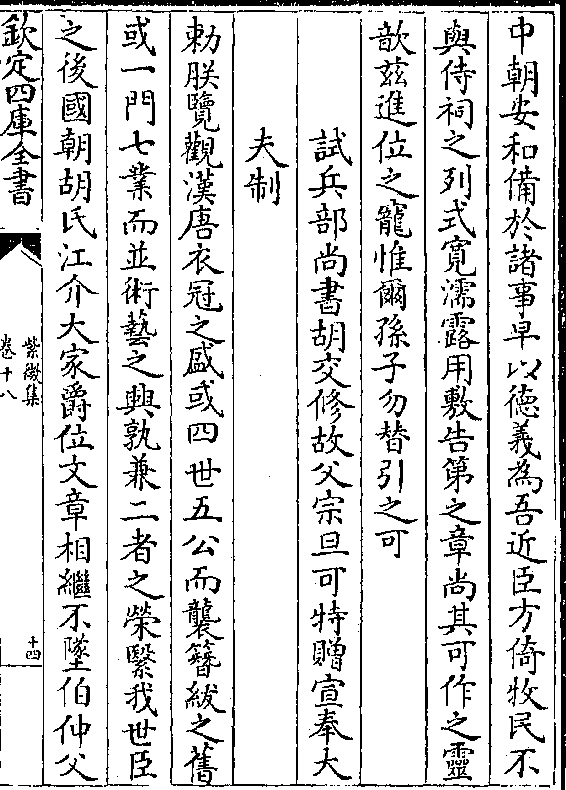 中朝安和備於諸事早以徳義為吾近臣方倚牧民不
與侍祠之列式寛濡露用敷告第之章尚其可作之靈
歆茲進位之寵惟爾孫子勿替引之可
試兵部尚書胡交修故父宗旦可特贈宣奉大
夫制
勅朕覽觀漢唐衣冠之盛或四世五公而襲簪紱之舊
或一門七業而並術藝之興孰兼二者之榮繄我世臣
之後國朝胡氏江介大家爵位文章相繼不墜伯仲父
欽定四庫全書
紫微集
卷十八
十四